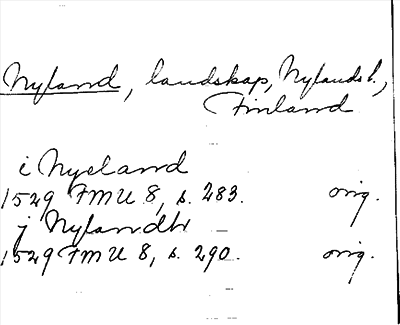 Nyland, landskap, Nylands l.,
Finland
i Nyeland
1529 FMU 8, s. 283. orig.
j Nylandh
1529 FMU 8, s. 290. orig.